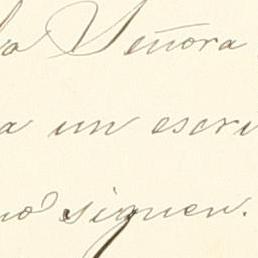 la Señora
a un escri
no siguen.